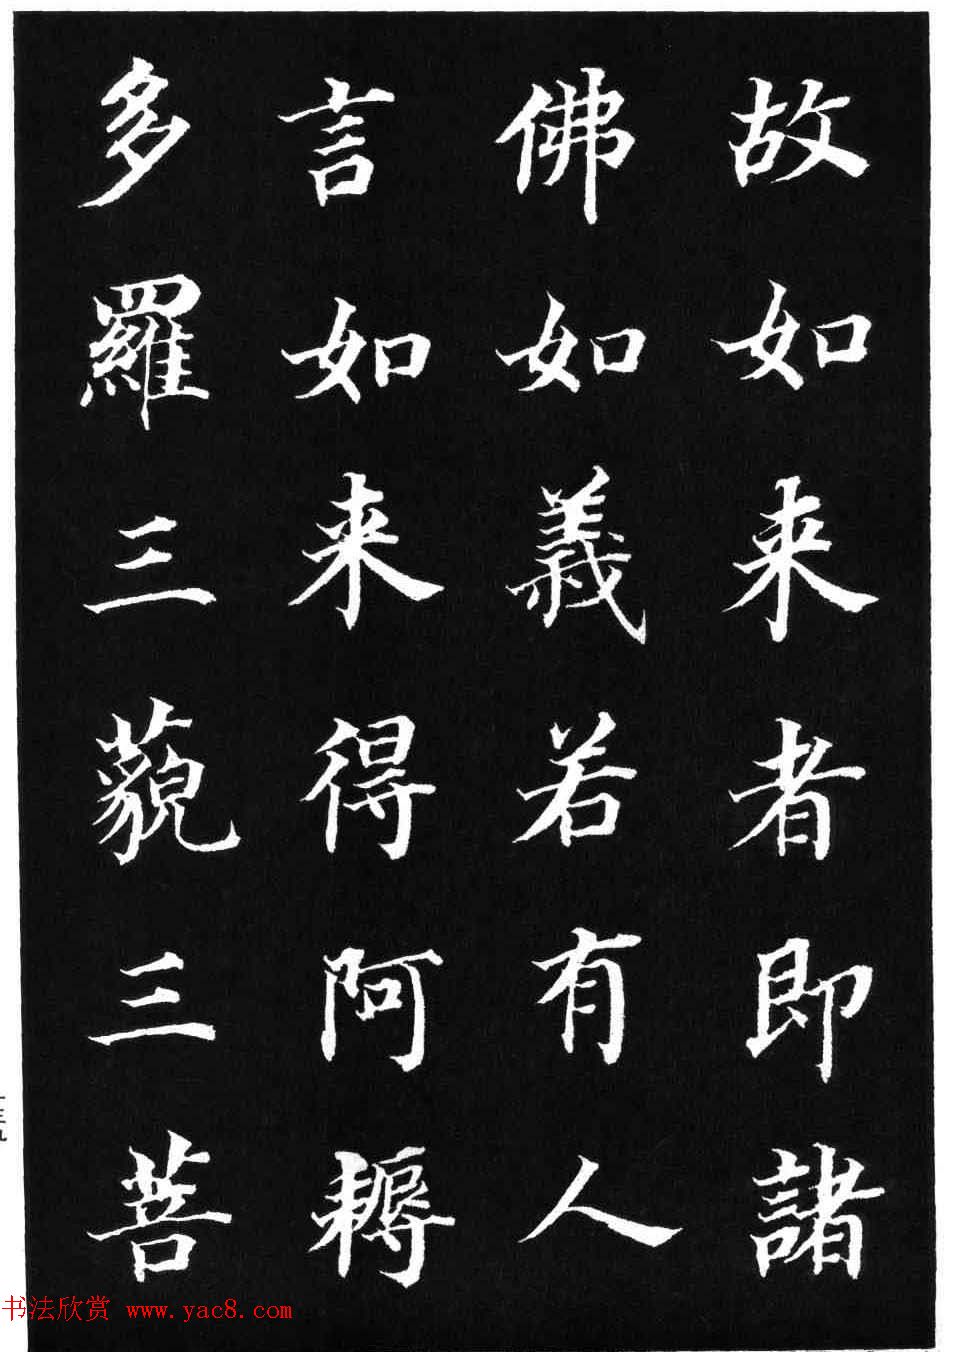 故如来者即諸
佛如義若有人
言如来得阿耨
多羅三藐三菩
书法欣赏 www.yac8.com